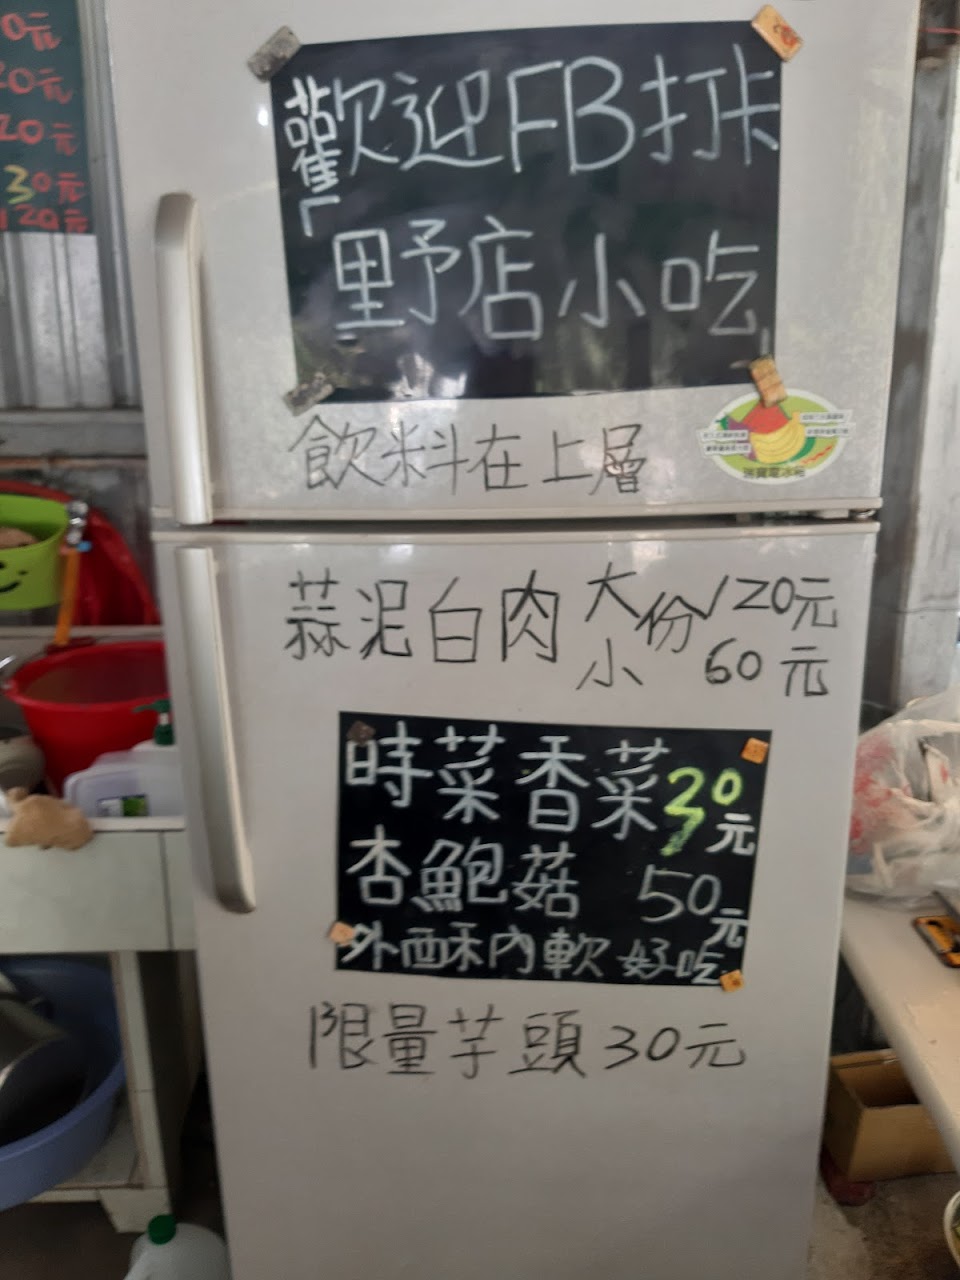 0元
20元
20元
30元
120元
歡迎FB打卡
厂里予店小吃
飲料在上層
蒜泥白肉 大 份 120元
小 60元
時菜香菜 30元
杏鮑菇 50元
外酥內軟 好吃
限量芋頭30元